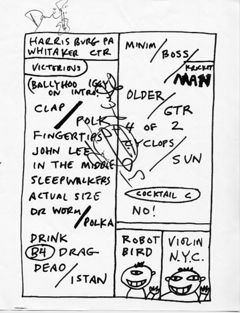 HARRISBURG PA
WHITAKER CTR
VICTORIOUS
(BALLYHOO
ON INTRO)
CLAP /
POLK
FINGERTIPS
JOHN LEE
IN THE MIDDLE
SLEEPWALKERS
ACTUAL SIZE
DR WORM /
POLKA
DRINK
B4 DRAG
DEAD /
ISTAN
MINIM /
BOSS /
KRICKET
MAN
OLDER /
GTR
4 OF 2
CYCLOPS /
SUN
COCKTAIL C
NO!
ROBOT
BIRD
VIOLIN
N.Y.C.